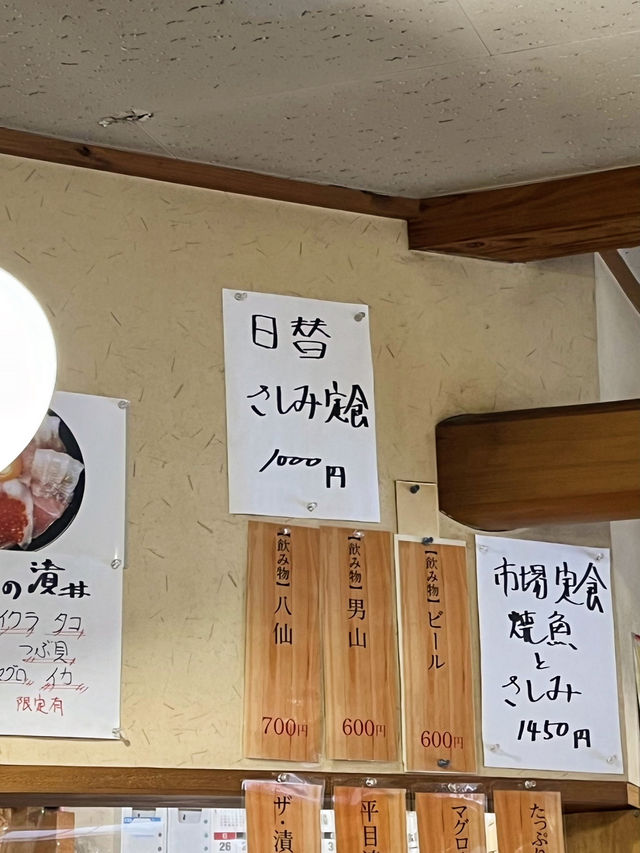 日替
さしみ定食
1000円
の漬丼
イクラ タコ
つぶ貝
マグロ イカ
限定有
【飲み物】八仙
700円
【飲み物】男山
600円
【飲み物】ビール
600円
市場定食
焼魚
と
さしみ
1450円
ザ・漬
平目
マグロ
たっぷり
26